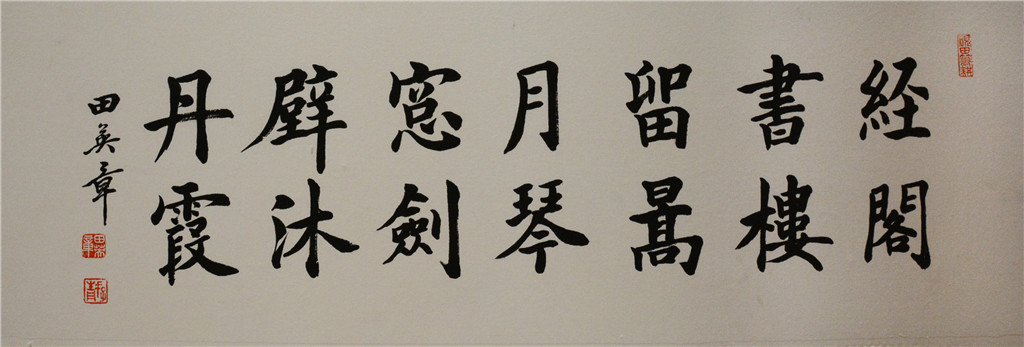 経閣
書樓
留暠
月琴
窓劍
壁沐
丹霞
田英章